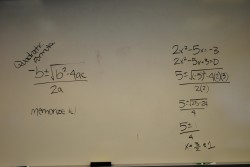 Quadratic
Formula
-b ± √b² - 4ac
2a
memorize it
2x² - 5x = -3
2x² - 5x + 3 = 0
5 ± √(-5)² - 4(2)(3)
2(2)
5 ± √25 - 24
4
5 ±
4